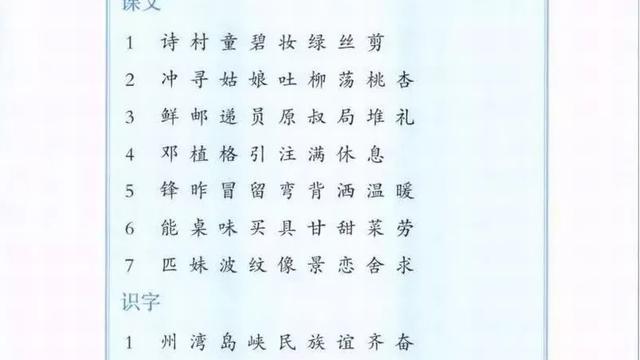 课文
1 诗 村 童 碧 妆 绿 丝 剪
2 冲 寻 姑 娘 吐 柳 荡 桃 杏
3 鲜 邮 递 员 原 叔 局 堆 礼
4 邓 植 格 引 注 满 休 息
5 锋 昨 冒 留 弯 背 洒 温 暖
6 能 桌 味 买 具 甘 甜 菜 劳
7 匹 妹 波 纹 像 景 恋 舍 求
识字
1 州 湾 岛 峡 民 族 谊 齐 奋